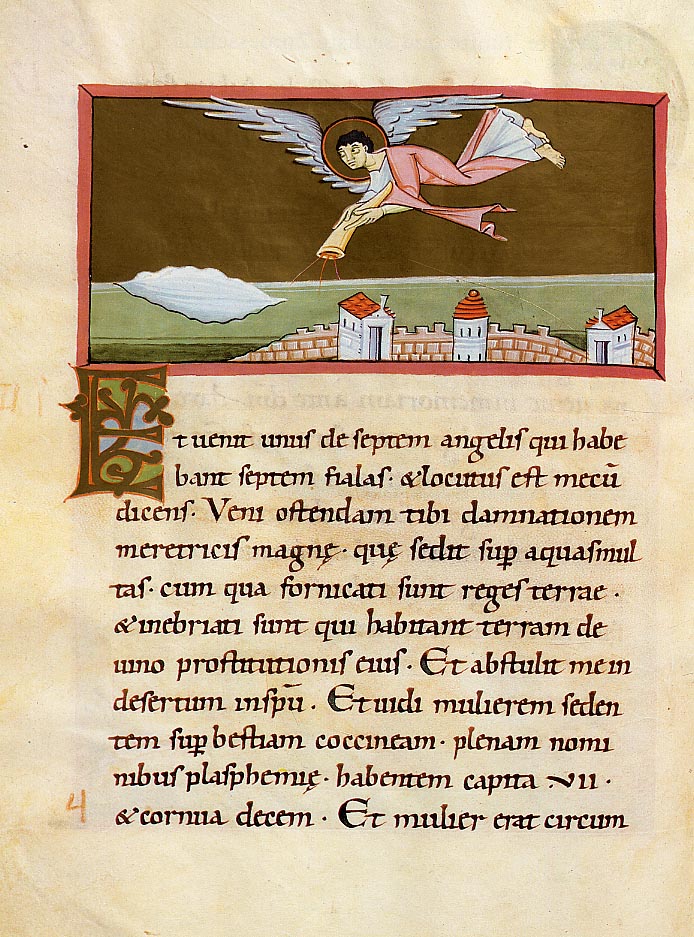 Et uenit unus de septem angelis qui habe
bant septem fialas · &locutus est mecū
dicens · Veni ostendam tibi damnationem
meretricis magnę · quę sedit sup̄ aquasmul
tas · cum qua fornicati sunt reges terrae ·
&inebriati sunt qui habitant terram de
uino prostitutionis eius · Et abstulit me in
desertum inspū · Et uidi mulierem seden
tem sup̄ bestiam coccineam · plenam nomi
nibus plasphemię · habentem capita · VII ·
&cornua decem · Et mulier erat circum
4